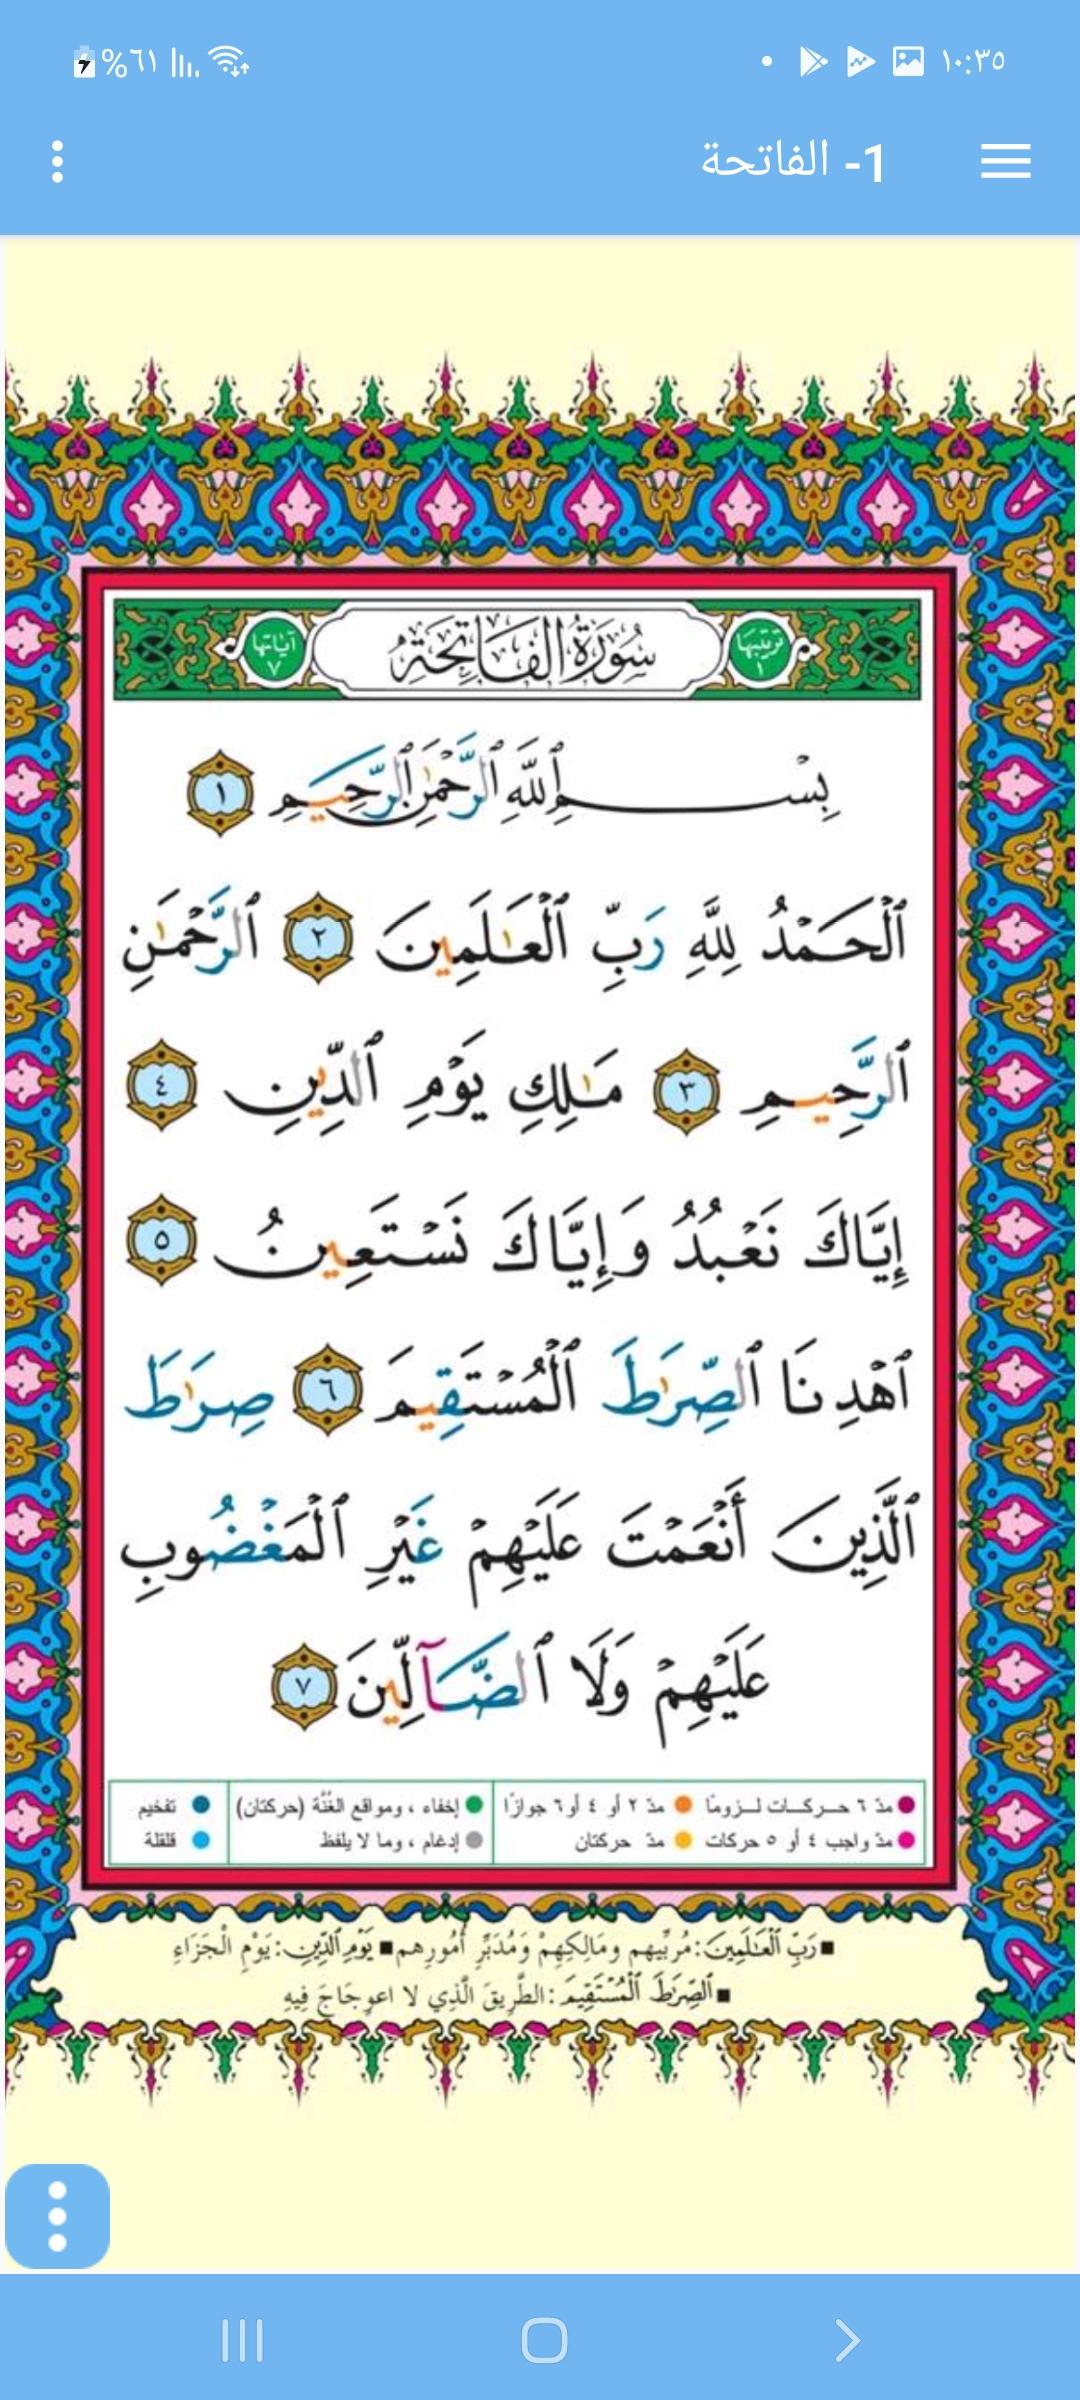 ١٠:٣٥ %٦١
1- الفاتحة
ترتيبها ١ سُورَةُ الفَاتِحَةِ آياتها ٧
بِسْمِ ٱللَّهِ ٱلرَّحْمَٰنِ ٱلرَّحِيمِ ١
ٱلْحَمْدُ لِلَّهِ رَبِّ ٱلْعَٰلَمِينَ ٢ ٱلرَّحْمَٰنِ
ٱلرَّحِيمِ ٣ مَٰلِكِ يَوْمِ ٱلدِّينِ ٤
إِيَّاكَ نَعْبُدُ وَإِيَّاكَ نَسْتَعِينُ ٥
ٱهْدِنَا ٱلصِّرَٰطَ ٱلْمُسْتَقِيمَ ٦ صِرَٰطَ
ٱلَّذِينَ أَنْعَمْتَ عَلَيْهِمْ غَيْرِ ٱلْمَغْضُوبِ
عَلَيْهِمْ وَلَا ٱلضَّآلِّينَ ٧
مدّ ٦ حركات لزومًا مدّ ٢ أو ٤ أو ٦ جوازًا إخفاء، ومواقع الغُنَّة (حركتان) تفخيم
مدّ واجب ٤ أو ٥ حركات مدّ حركتان إدغام، وما لا يلفظ قلقلة
■ رَبِّ ٱلْعَٰلَمِينَ: مُرَبِّيهم ومَالِكِهِمْ وَمُدَبِّرِ أُمُورِهم ■ يَوْمِ ٱلدِّينِ: يَوْمِ الْجَزَاءِ
■ ٱلصِّرَٰطَ ٱلْمُسْتَقِيمَ: الطَّرِيقَ الَّذِي لا اعوِجَاجَ فِيهِ